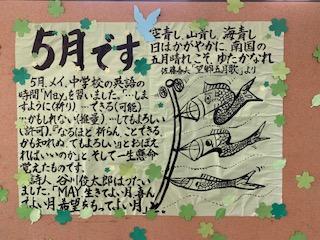 5月です
空青し、山青し 海青し
日はかがやかに、南国の
五月晴れこそ、ゆたかなれ
佐藤春夫「望郷五月歌」より
5月、メイ。中学校の英語の
時間「May」を習いました。「…しま
すように(祈り)…できる(可能)
…かもしれない(推量)…してもよろしい
(許可)」「なるほど 祈らん ことできる
かも知れぬ、てもよろしい」とおぼえ
ればいいのか」と そして一生懸命
覚えたものです。
詩人 谷川俊太郎はうたい
ました。「MAY 生きてよい月 喜ん
でよい月 希望をもってよい月」